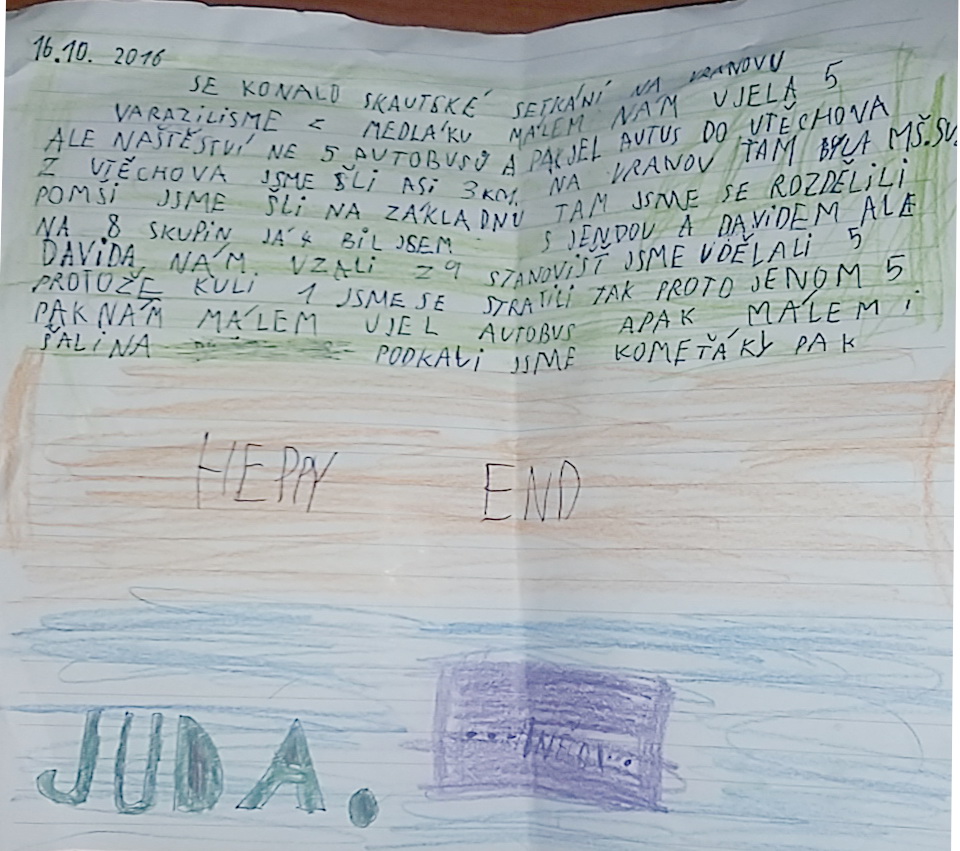 16.10. 2016
SE KONALO SKAUTSKÉ SETKÁNÍ NA VRANOVU
VARAZILISME Z MEDLÁKU MÁLEM NÁM UJELA 5
ALE NAŠTĚSTVÍ NE 5 AUTOBUSŮ A PAK JEL AUTUS DO VTĚCHOVA
Z VTĚCHOVA JSME ŠLI ASI 3KM. NA VRANOV TAM BYLA MŠ.SV.
POMŠI JSME ŠLI NA ZÁKLADNU TAM JSME SE ROZDĚLILI
NA 8 SKUPIN JÁ BIL JSEM S JENDOU A DAVIDEM ALE
DAVIDA NÁM VZALI Z 9 STANOVIŠŤ JSME UDĚLALI 5
PROTOŽE KULI 1 JSME SE STRATILI TAK PROTO JENOM 5
PAK NÁM MÁLEM UJEL AUTOBUS APAK MÁLEM i
ŠALINA PODKALI JSME KOMEŤÁKY PAK
HEPPY END
JUDA.